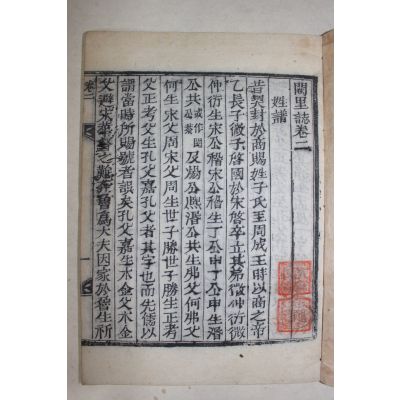 闕里誌卷二
姓譜
昔契封於商賜姓子氏至周成王時以商之帝
乙長子微子啓國於宋啓卒立其弟微仲衍微
仲衍生宋公稽宋公稽生丁公申丁公申生湣
公共或作閔公及煬公熙湣公共生弗父何弗父
何生宋父周宋父周生世子勝世子勝生正考
父正考父生孔父嘉孔父者其字也而先儒以
謂當時所賜號者誤矣孔父嘉生木金父木金
父避宋華督之難奔魯爲大夫因家於魯生祈
卷二
一